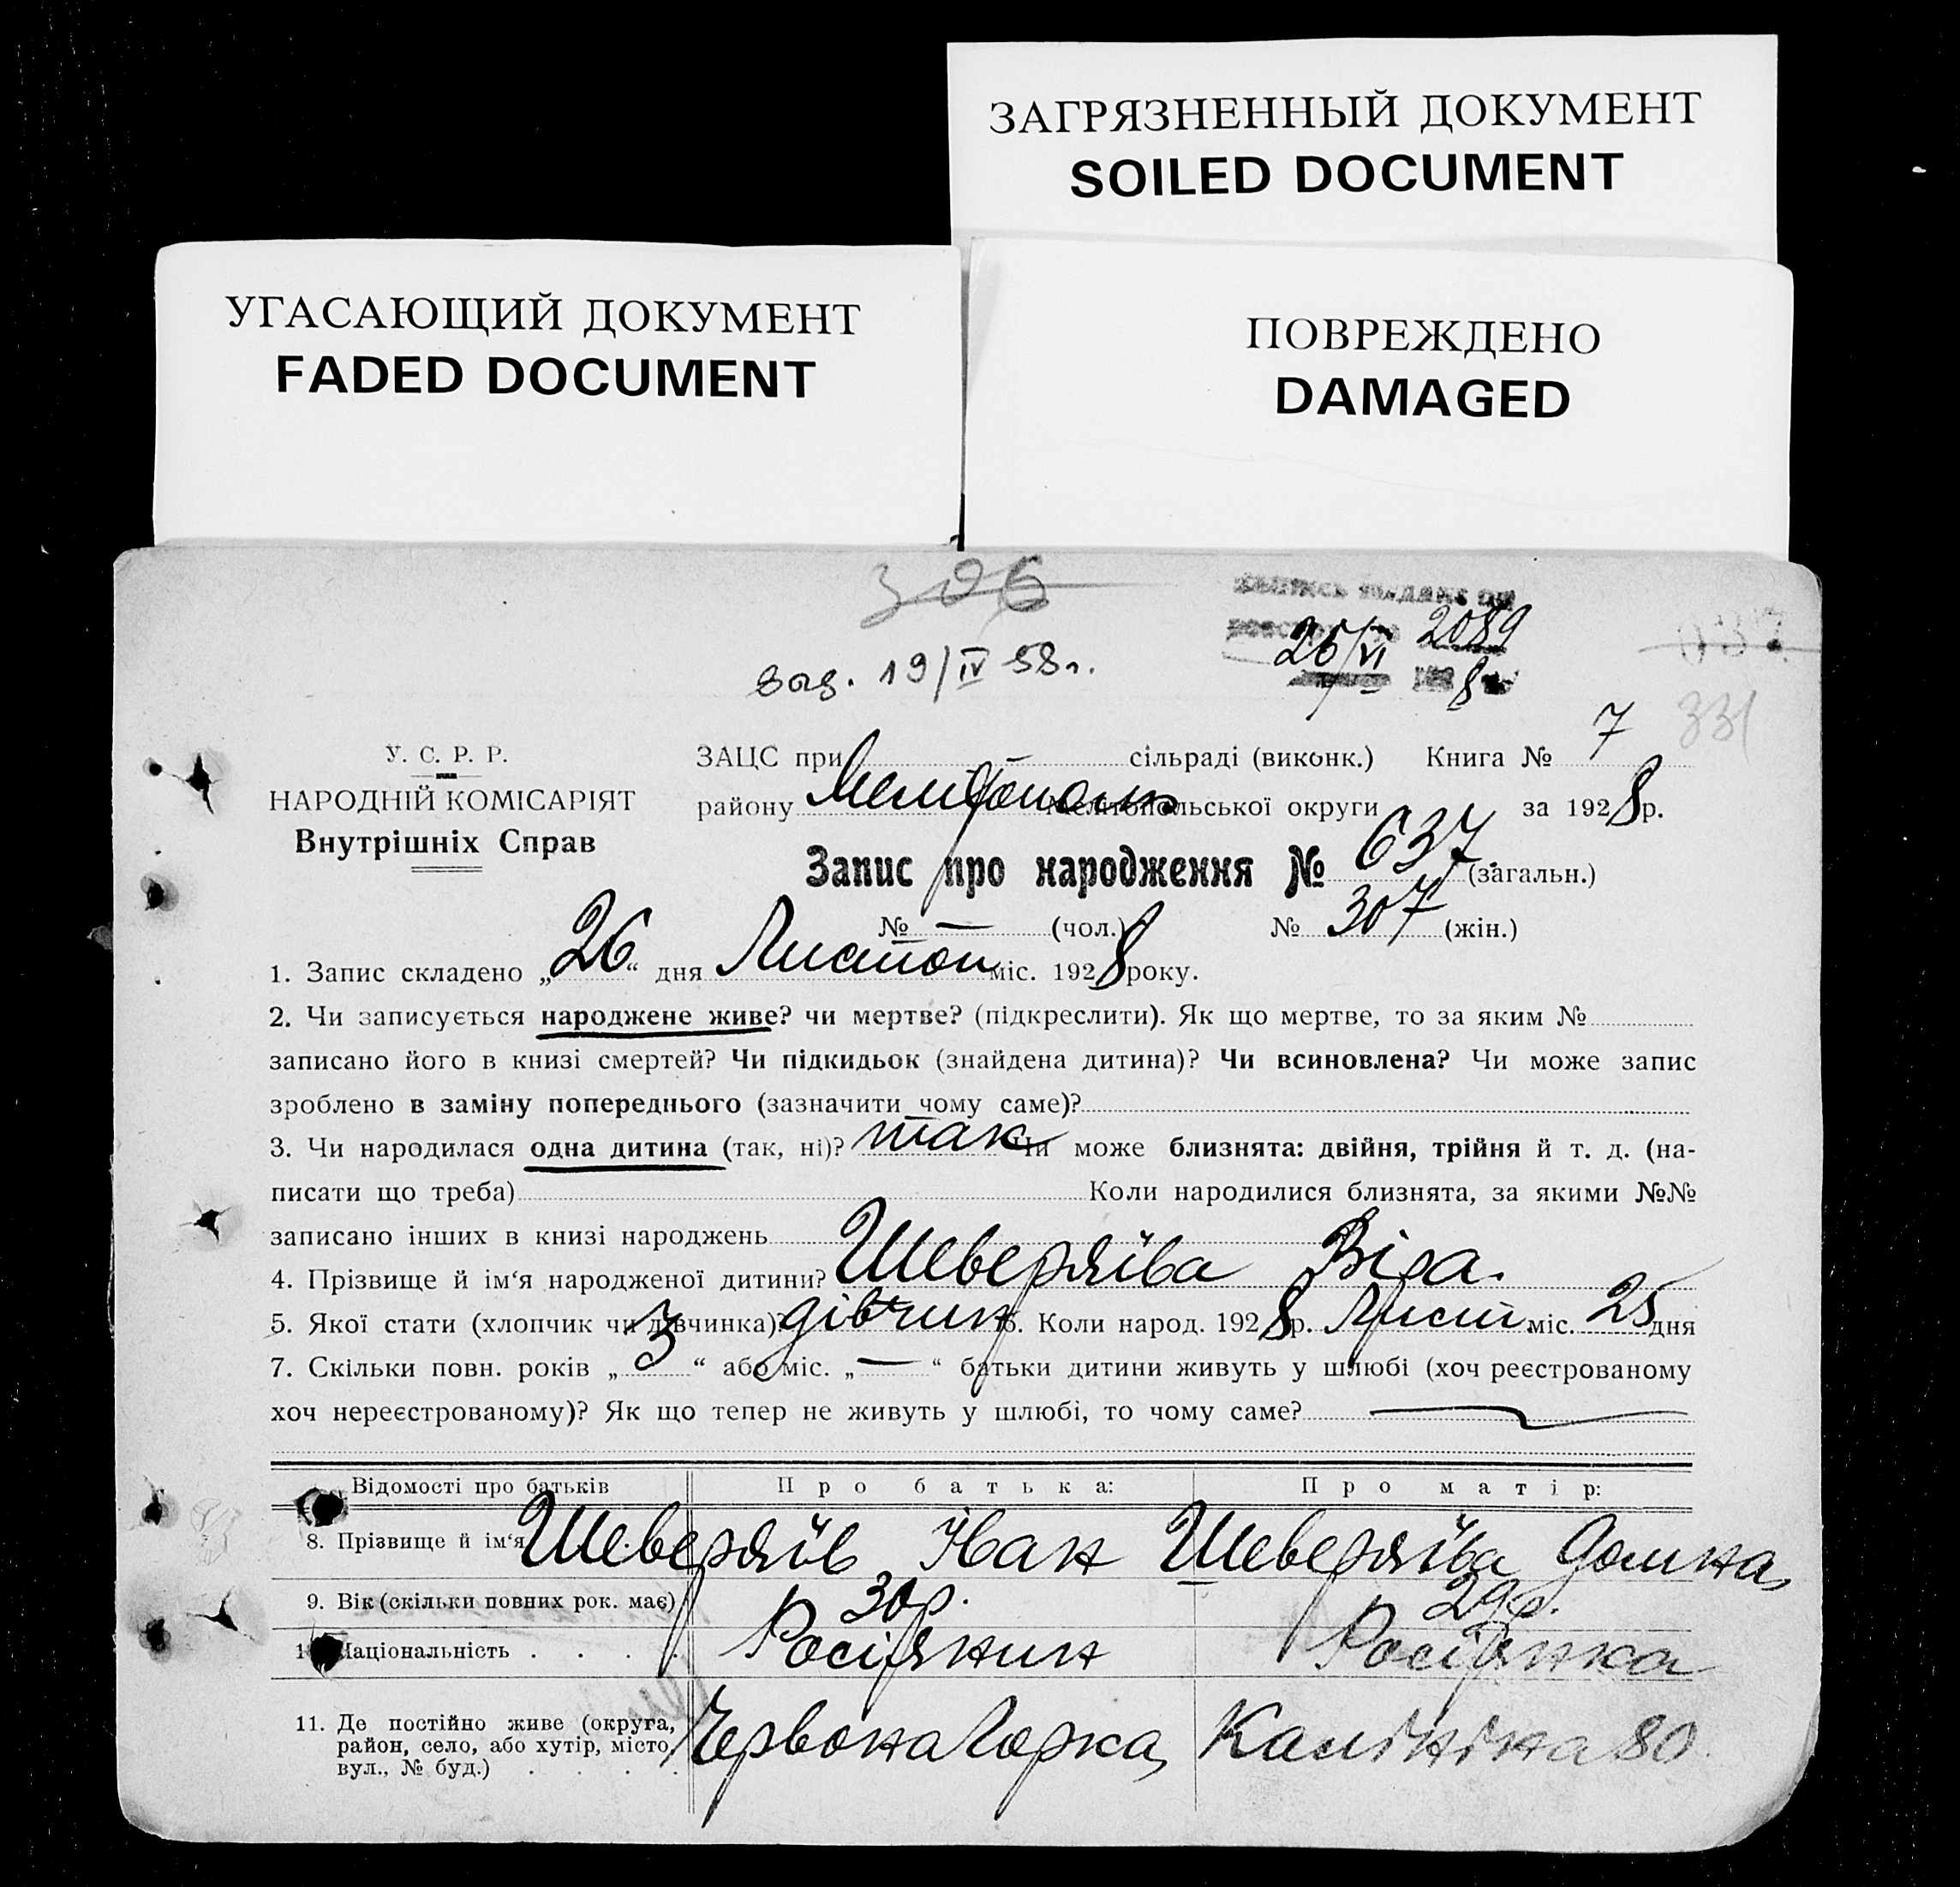 ЗАГРЯЗНЕННЫЙ ДОКУМЕНТ
SOILED DOCUMENT
УГАСАЮЩИЙ ДОКУМЕНТ
FADED DOCUMENT
ПОВРЕЖДЕНО
DAMAGED
306
2089
19/IV 58г.
331
У. С. Р. Р.
НАРОДНІЙ КОМІСАРІЯТ
Внутрішніх Справ
ЗАЦС при сільраді (виконк.) Книга № 7
району Мелітополь Мелітопольської округи за 1928 р.
Запис про народження № 637 (загальн.)
№ — (чол.) № 307 (жін.)
1. Запис складено „26“ дня Листоп міс. 1928 року.
2. Чи записується народжене живе? чи мертве? (підкреслити). Як що мертве, то за яким №
записано його в книзі смертей? Чи підкидьок (знайдена дитина)? Чи всиновлена? Чи може запис
зроблено в заміну попереднього (зазначити чому саме)?
3. Чи народилася одна дитина (так, ні)? так Чи може близнята: двійня, трійня й т. д. (на-
писати що треба) Коли народилися близнята, за якими №№
записано інших в книзі народжень
4. Прізвище й ім‘я народженої дитини? Шеверяїва Віра.
5. Якої стати (хлопчик чи дівчинка)? дівчин 6. Коли народ. 1928 р. Лист міс. 25 дня
7. Скільки повн. років „3“ або міс. „—“ батьки дитини живуть у шлюбі (хоч реєстрованому
хоч нереєстрованому)? Як що тепер не живуть у шлюбі, то чому саме? —
Відомості про батьків Про батька: Про матір:
8. Прізвище й ім‘я Шеверяїв Іван Шеверяїва Домна
9. Вік (скільки повних рок. має) 30 р. 29 р.
10. Національність . . . . Росіянин Росіянка
11. Де постійно живе (округа, район, село, або хутір, місто, вул., № буд.) . . . . Червона Горка, Калініна 80